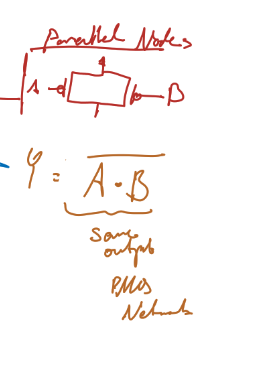 Parallel Nodes
A B
Y = \overline{A · B}
Same
output
PMOS
Network